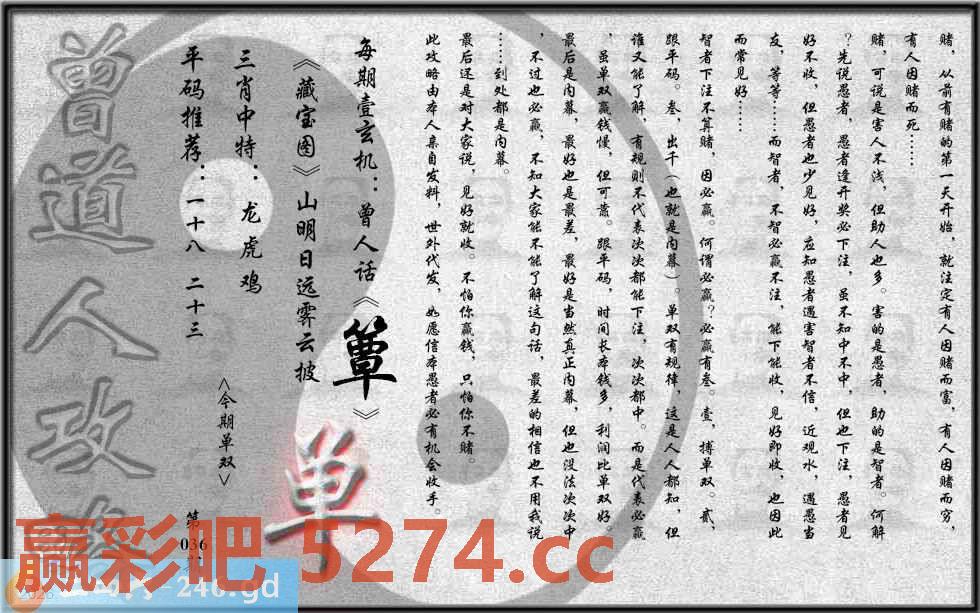 赌，从前有赌的第一天开始，就注定有人因赌而富，有人因赌而穷，
有人因赌而死……
赌，可说是害人不浅，但助人也多。害的是愚者，助的是智者。何解
？先说愚者，愚者逢开奖必下注，虽不知中不中，但也下注，愚者见
好不收，但愚者也少见好，应知愚者遇害智者不信，近观水，遇愚当
友，等等……而智者，不智必赢不注，能下能收，见好即收，也因此
而常见好……
智者下注不算赌，因必赢。何谓必赢？必赢有叁。壹，搏单双。贰，
跟平码。叁，出千（也就是内幕）。单双有规律，这是人人都知，但
谁又能了解，有规则不代表次次都能下注，次次都中。而是代表必赢
，虽单双赢钱慢，但可靠。跟平码，时间长本钱多，利润比单双好。
最后是内幕，最好也是最差，最好是当然真正内幕，但也没法次次中
，不过也必赢，不知大家能不能了解这句话，最差的相信也不用我说
……到处都是内幕。
最后还是对大家说，见好就收。不怕你赢钱，只怕你不赌。
此攻略由本人亲自发料，世外代发，如愿信本愚者必有机会收手。
每期壹玄机：曾人话《簟》
《藏宝图》山明日远霁云披
三肖中特：龙虎鸡
平码推荐：一十八 二十三
<今期单双>
单
第036
曾道人攻
赢彩吧 5274.cc
246.gd